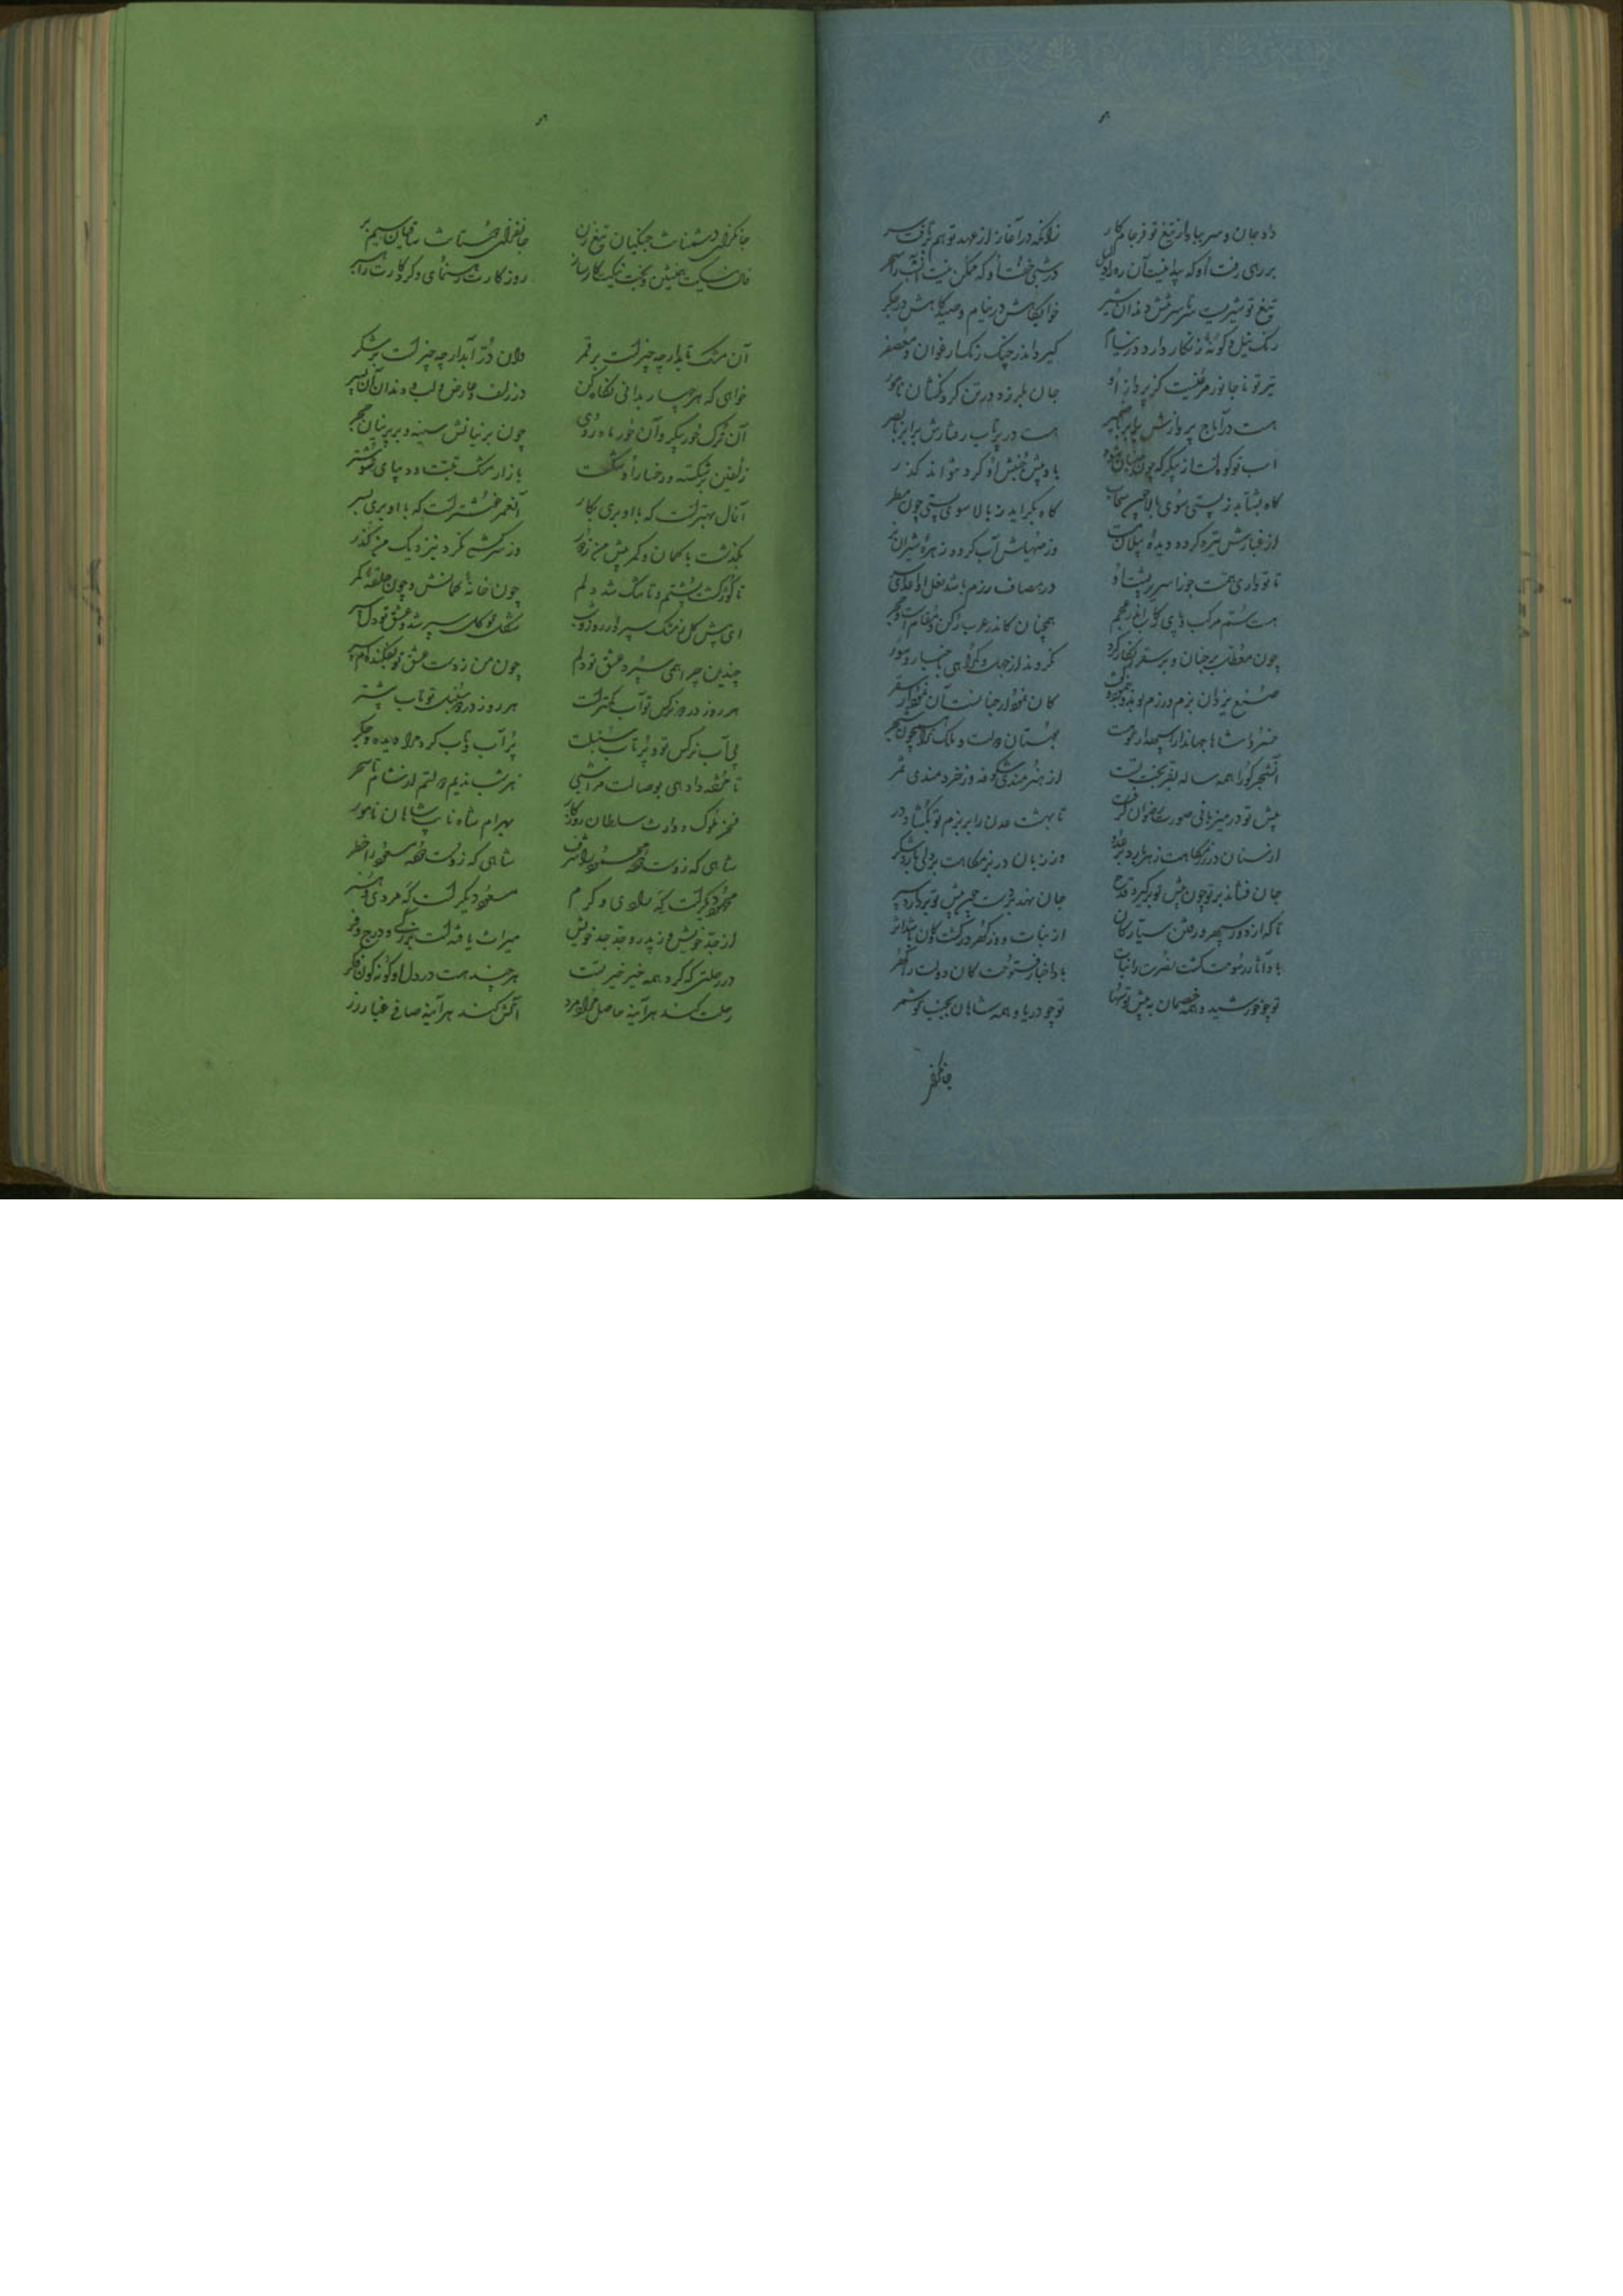 داد جان و سر بباد از تیغ تو فرجام کار زانکه در آغاز از عهد تو هم برتافت سر
بر رهی رفت او که پیدا نیست آن ره را دلیل در شبی خفت او که ممکن نیست آنشب را سحر
تیغ تو شیریست شرزش دندان شیر خوابگاهش در نیام و صیدگاهش در جگر
رنگ نیل و گونهٔ زنگار دارد در نیام گیرد اندر جنگ رنگ ارغوان و معصفر
تیر تو نا جانور مرغیست کز پرواز او جان بلرزد در تن گردنکشان نامور
هست در آماج پروازش برابر با ضمیر هست در پرتاب رفتارش برابر با بصر
اسب تو کوه است از پیکر که چون جنبان شود باد پیش جنبش او کرد نتواند گذر
گاه بشتابد ز پستی سوی بالا چون سحاب گاه بگراید ز بالا سوی پستی چون مطر
از غبارش تیره گردد دیدهٔ پیلان مست وز صهیلش آب گردد زهرهٔ شیران نر
تا تو داری همت جوزا سریر پشت او در مصاف رزم باشد نعل او
هست سُم مرکب و پای رکاب اندر عجم همچنان کاندر عرب رکن و مقام است و حجر
چون معطل بر جنان و بر سقر انکار کرد
صنع یزدان بزم و رزم تو کان نمودار جنانست آن نمودار سقر
خسروا شاها جهاندارا بوستان دولت و ملک
آنشجر کو را همه ساله بقر بخت تست از هنرمندی شکوفه وز خردمندی ثمر
پیش تو در میزبانی صورت رضوان گرفت تا بهشت عدن را بر بزم تو بگشاد در
از سنان در رزمگاهت زهر بارد بر عدو وز زبان در بزمگاهت بر ولی بارد شکر
جان فشاند بر تو چون پیش تو برگیرد قدح جان نهد بر دست چون پیش تو بردارد سپر
تا که از دور سپهر و رفتن سیارگان از نبات و وز گهر در کشت و کان باشد اثر
باد آثار رسومت کشت نصرت را نبات باد اخبار فتوحت کان دولت را گهر
تو چو خورشید و همه خصمان به پیش تو سُها تو چو دریا و همه شاهان بجنب تو شمر
جانگزای
جانگزای دشمنانت جنگیان تیغ زن جانفزای دوستانت ساقیان سیم بر
فال نیکت همنشین و بخت نیکت کارساز روزگارت رهنمای و کردگارت راهبر
آن مشک تابدار چه چیز است بر قمر وان دُرّ آبدار چه چیز است بر شکر
خواهی که هر چهار بدانی نگاه کن در زلف و عارض و لب و دندان آن پسر
آن ترک حور پیکر و آن حور ماه روی چون پرنیانش سینه و بر پرنیان حجر
زلفین بر شکسته و رخسار او شکست بازار مشک تبت و دیبای شوشتر
آنسال بهتر است که با او بری بکار آنعمر خوشتر است که با او بری بسر
بگذشت با کمان و کمر پیش من ز دور وز سرکشی نکرد بنزدیک من گذر
تا گوژ گشت پشتم و تا تنگ شد دلم چون خانهٔ کمانش و چون حلقهٔ کمر
ای پیش گل ز مشک سپر
چندین چرا همی سپرد عشق تو دلم چون من ز دست عشق تو بفکنده ام سپر
هر روز در دو نرگس تو آب کمتر است هر روز در دو سنبل تو تاب بیشتر
بی آب نرگس تو و پُر تاب سنبلت پُر آب و تاب کرد مرا دیده و جگر
تا مژده داده ای بوصالت مرا شبی هر شب ندیم دولتم از شام تا سحر
فخر ملوک و وارث سلطان روزگار بهرام شاه ناب شاهان نامور
شاهی که زوست دودهٔ محمود را شرف شاهی که زوست دودهٔ مسعود را خطر
محمود دیگر است گه رادی و کرم مسعود دیگر است گه مردی و هنر
از جدّ خویش و ز پدر و جدّ جدّ خویش میراث یافته است بزرگی و درج و فر
در رحلتی که کرد همه خیر خیر تست هر چند هست در دل او گونه گون فکر
رحلت کند هر آینه حاصل مراد مرد آتش کند هر آینه صافی غیار زر